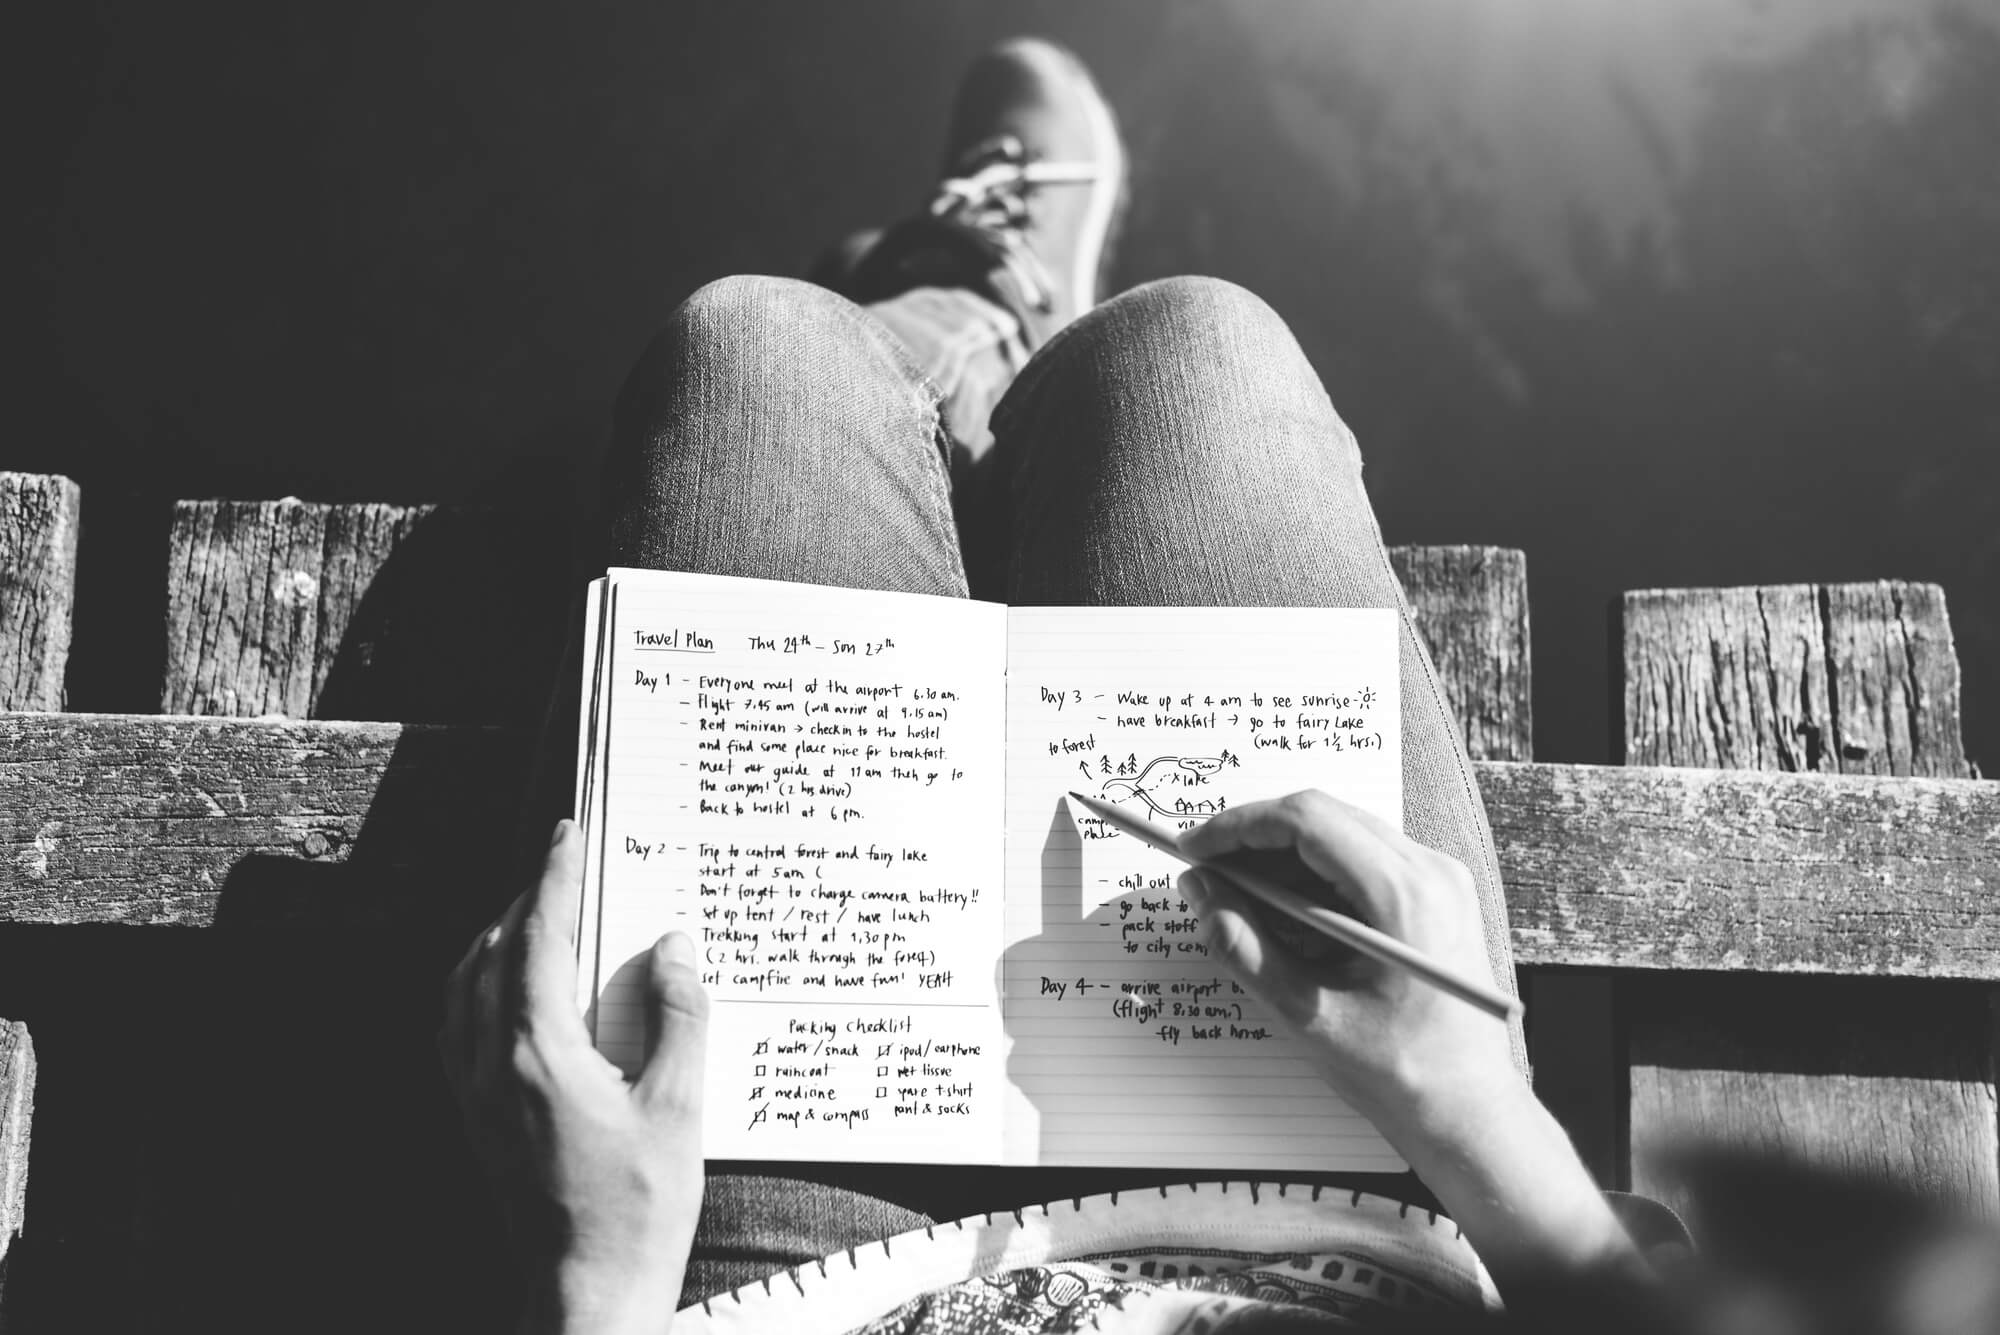 Travel Plan Thu 24th - Sun 27th
Day 1 - Everyone meet at the airport 6.30 am.
- Flight 7.45 am (will arrive at 9.15 am)
- Rent minivan → check in to the hostel
and find some place nice for breakfast.
- Meet our guide at 11 am then go to
the canyon! (2 hrs drive)
- Back to hostel at 6 pm.
Day 2 - Trip to central forest and fairy lake
start at 5 am (
- Don't forget to charge camera battery!!
- Set up tent / rest / have lunch
Trekking start at 1,30 pm
(2 hrs. walk through the forest)
set campfire and have fun! YEAH
Packing checklist
water/snack
raincoat
medicine
map & compass
ipod/earphone
wet tissue
spare t-shirt
pant & socks
Day 3 - Wake up at 4 am to see sunrise
- have breakfast → go to fairy Lake
(walk for 1 1/2 hrs.)
to forest
x lake
place
- chill out
- go back to
- pack stuff
to city cen
Day 4 - arrive airport
(flight 8.30 am.)
- fly back home